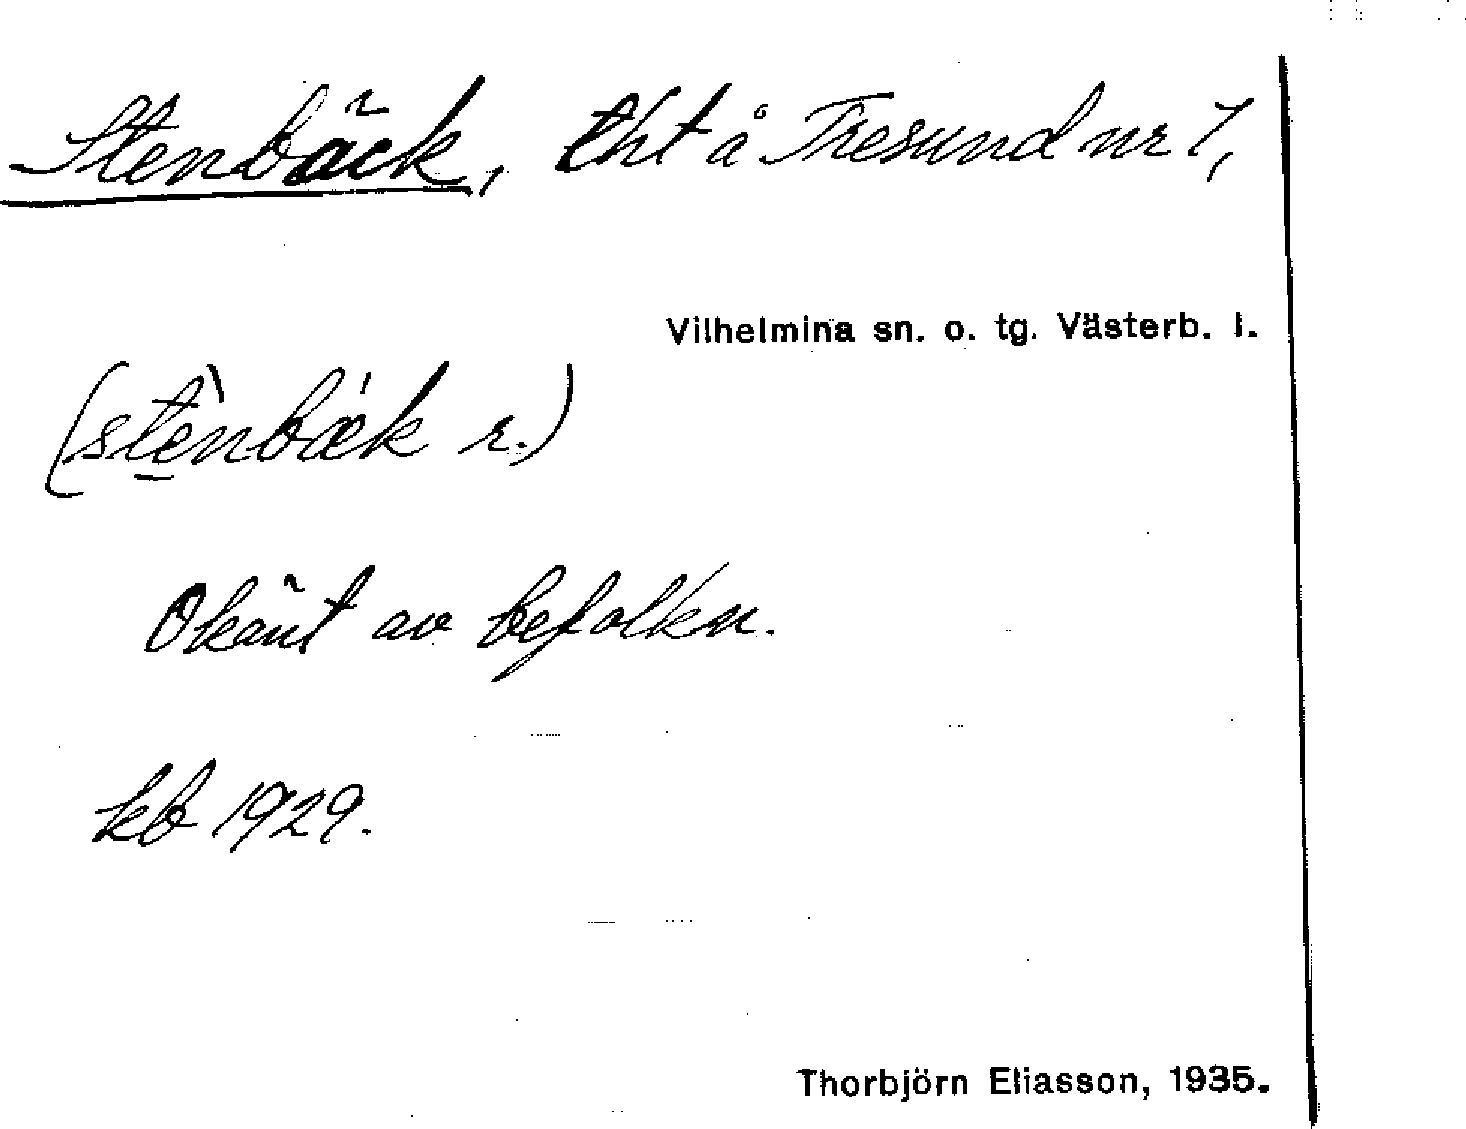 Stenbäck, tht å Tresund nr 7,
Vilhelmina sn. o. tg. Västerb. l.
(stènbæ'k r.)
Okänt av befolkn.
kb 1929.
Thorbjörn Eliasson, 1935.